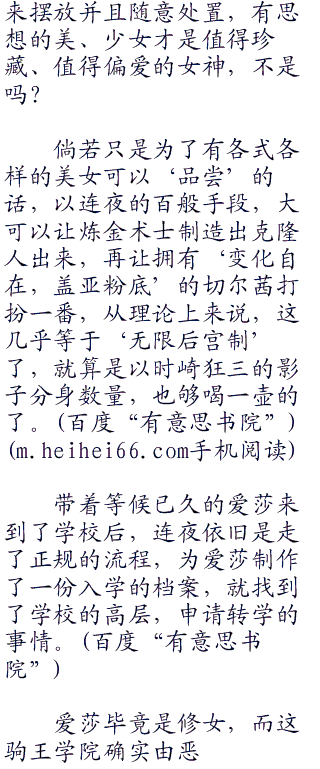 来摆放并且随意处置，有思
想的美、少女才是值得珍
藏、值得偏爱的女神，不是
吗？
倘若只是为了有各式各
样的美女可以‘品尝’的
话，以连夜的百般手段，大
可以让炼金术士制造出克隆
人出来，再让拥有‘变化自
在，盖亚粉底’的切尔茜打
扮一番，从理论上来说，这
几乎等于‘无限后宫制’
了，就算是以时崎狂三的影
子分身数量，也够喝一壶的
了。(百度“有意思书院”)
(m.heihei66.com手机阅读)
带着等候已久的爱莎来
到了学校后，连夜依旧是走
了正规的流程，为爱莎制作
了一份入学的档案，就找到
了学校的高层，申请转学的
事情。(百度“有意思书
院”)
爱莎毕竟是修女，而这
驹王学院确实由恶